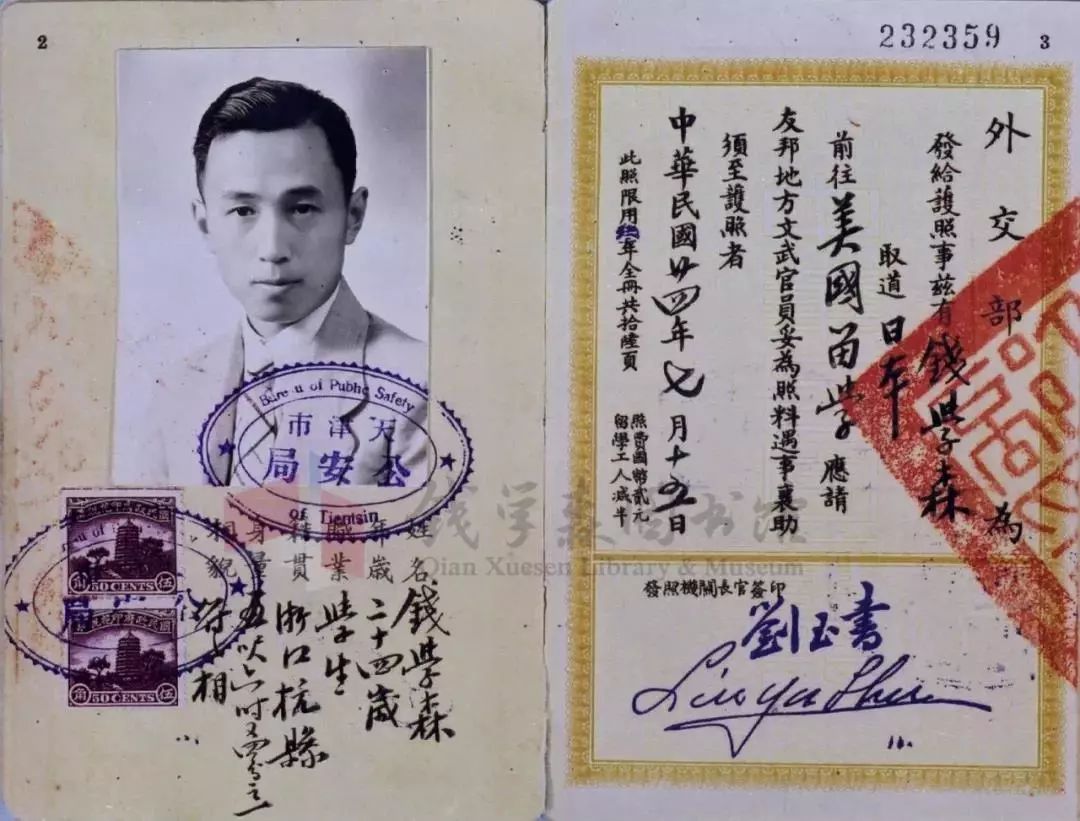 2
Bureau of Public Safety
天津市
公安局
of Tientsin
50 CENTS
伍角
50 CENTS
伍角
姓名 錢學森
年歲 二十四歲
職業 學生
籍貫 浙江杭縣
身量 五呎六吋又四分之一
相貌
232359
3
外交部為
發給護照事茲有錢學森
取道日本
前往美國留學應請
友邦地方文武官員妥為照料遇事襄助
須至護照者
中華民國廿四年七月十五日
此照限用年全冊共拾陸頁
照費國幣貳元
留學工人減半
發照機關長官簽印
劉玉書
Liu Yu Shu
钱学森图书馆
Qian Xuesen Library & Museum